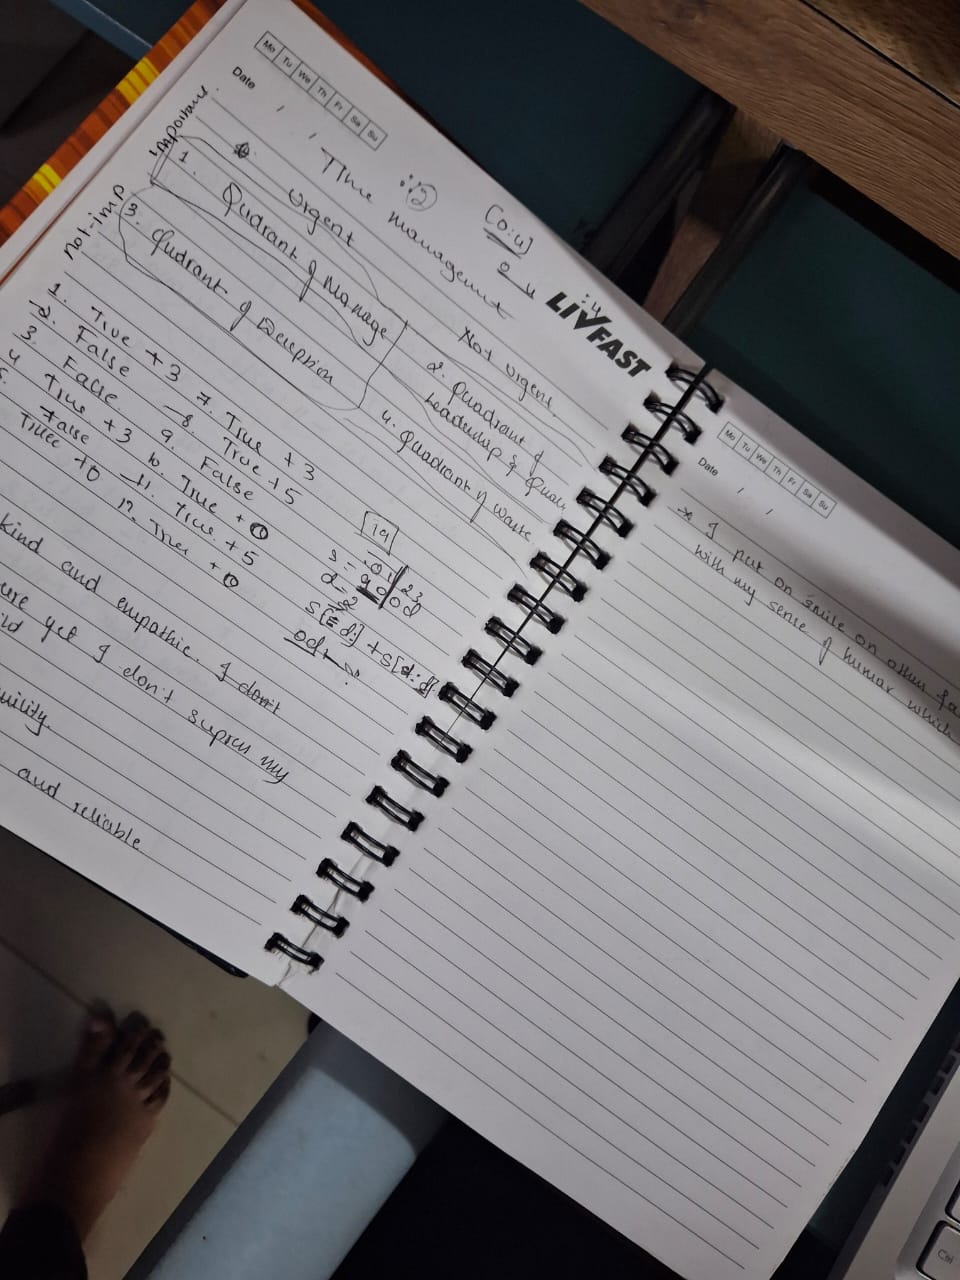 Mo Tu We Th Fr Sa Su
Date / /
[0:4]
::2
0 4
:4
LIVFAST
Time management
Urgent
Not urgent
Important
1. Quadrant of Manage
2. Quadrant of
Leadership &
not-imp
3. Qudrant of Deception
4. Quadrant of waste
1. True +3
2. False
3. False
4 True +3
False
+0
7. True +3
8. True +5
9. False
10. True +0
11. True +5
12. True
+0
[19]
0123
good
kind and empathic. I don't
yet I don't supress my
and reliable
Mo Tu We Th Fr Sa Su
Date / /
I put on smile on other
with my sense of humar which
Ctrl